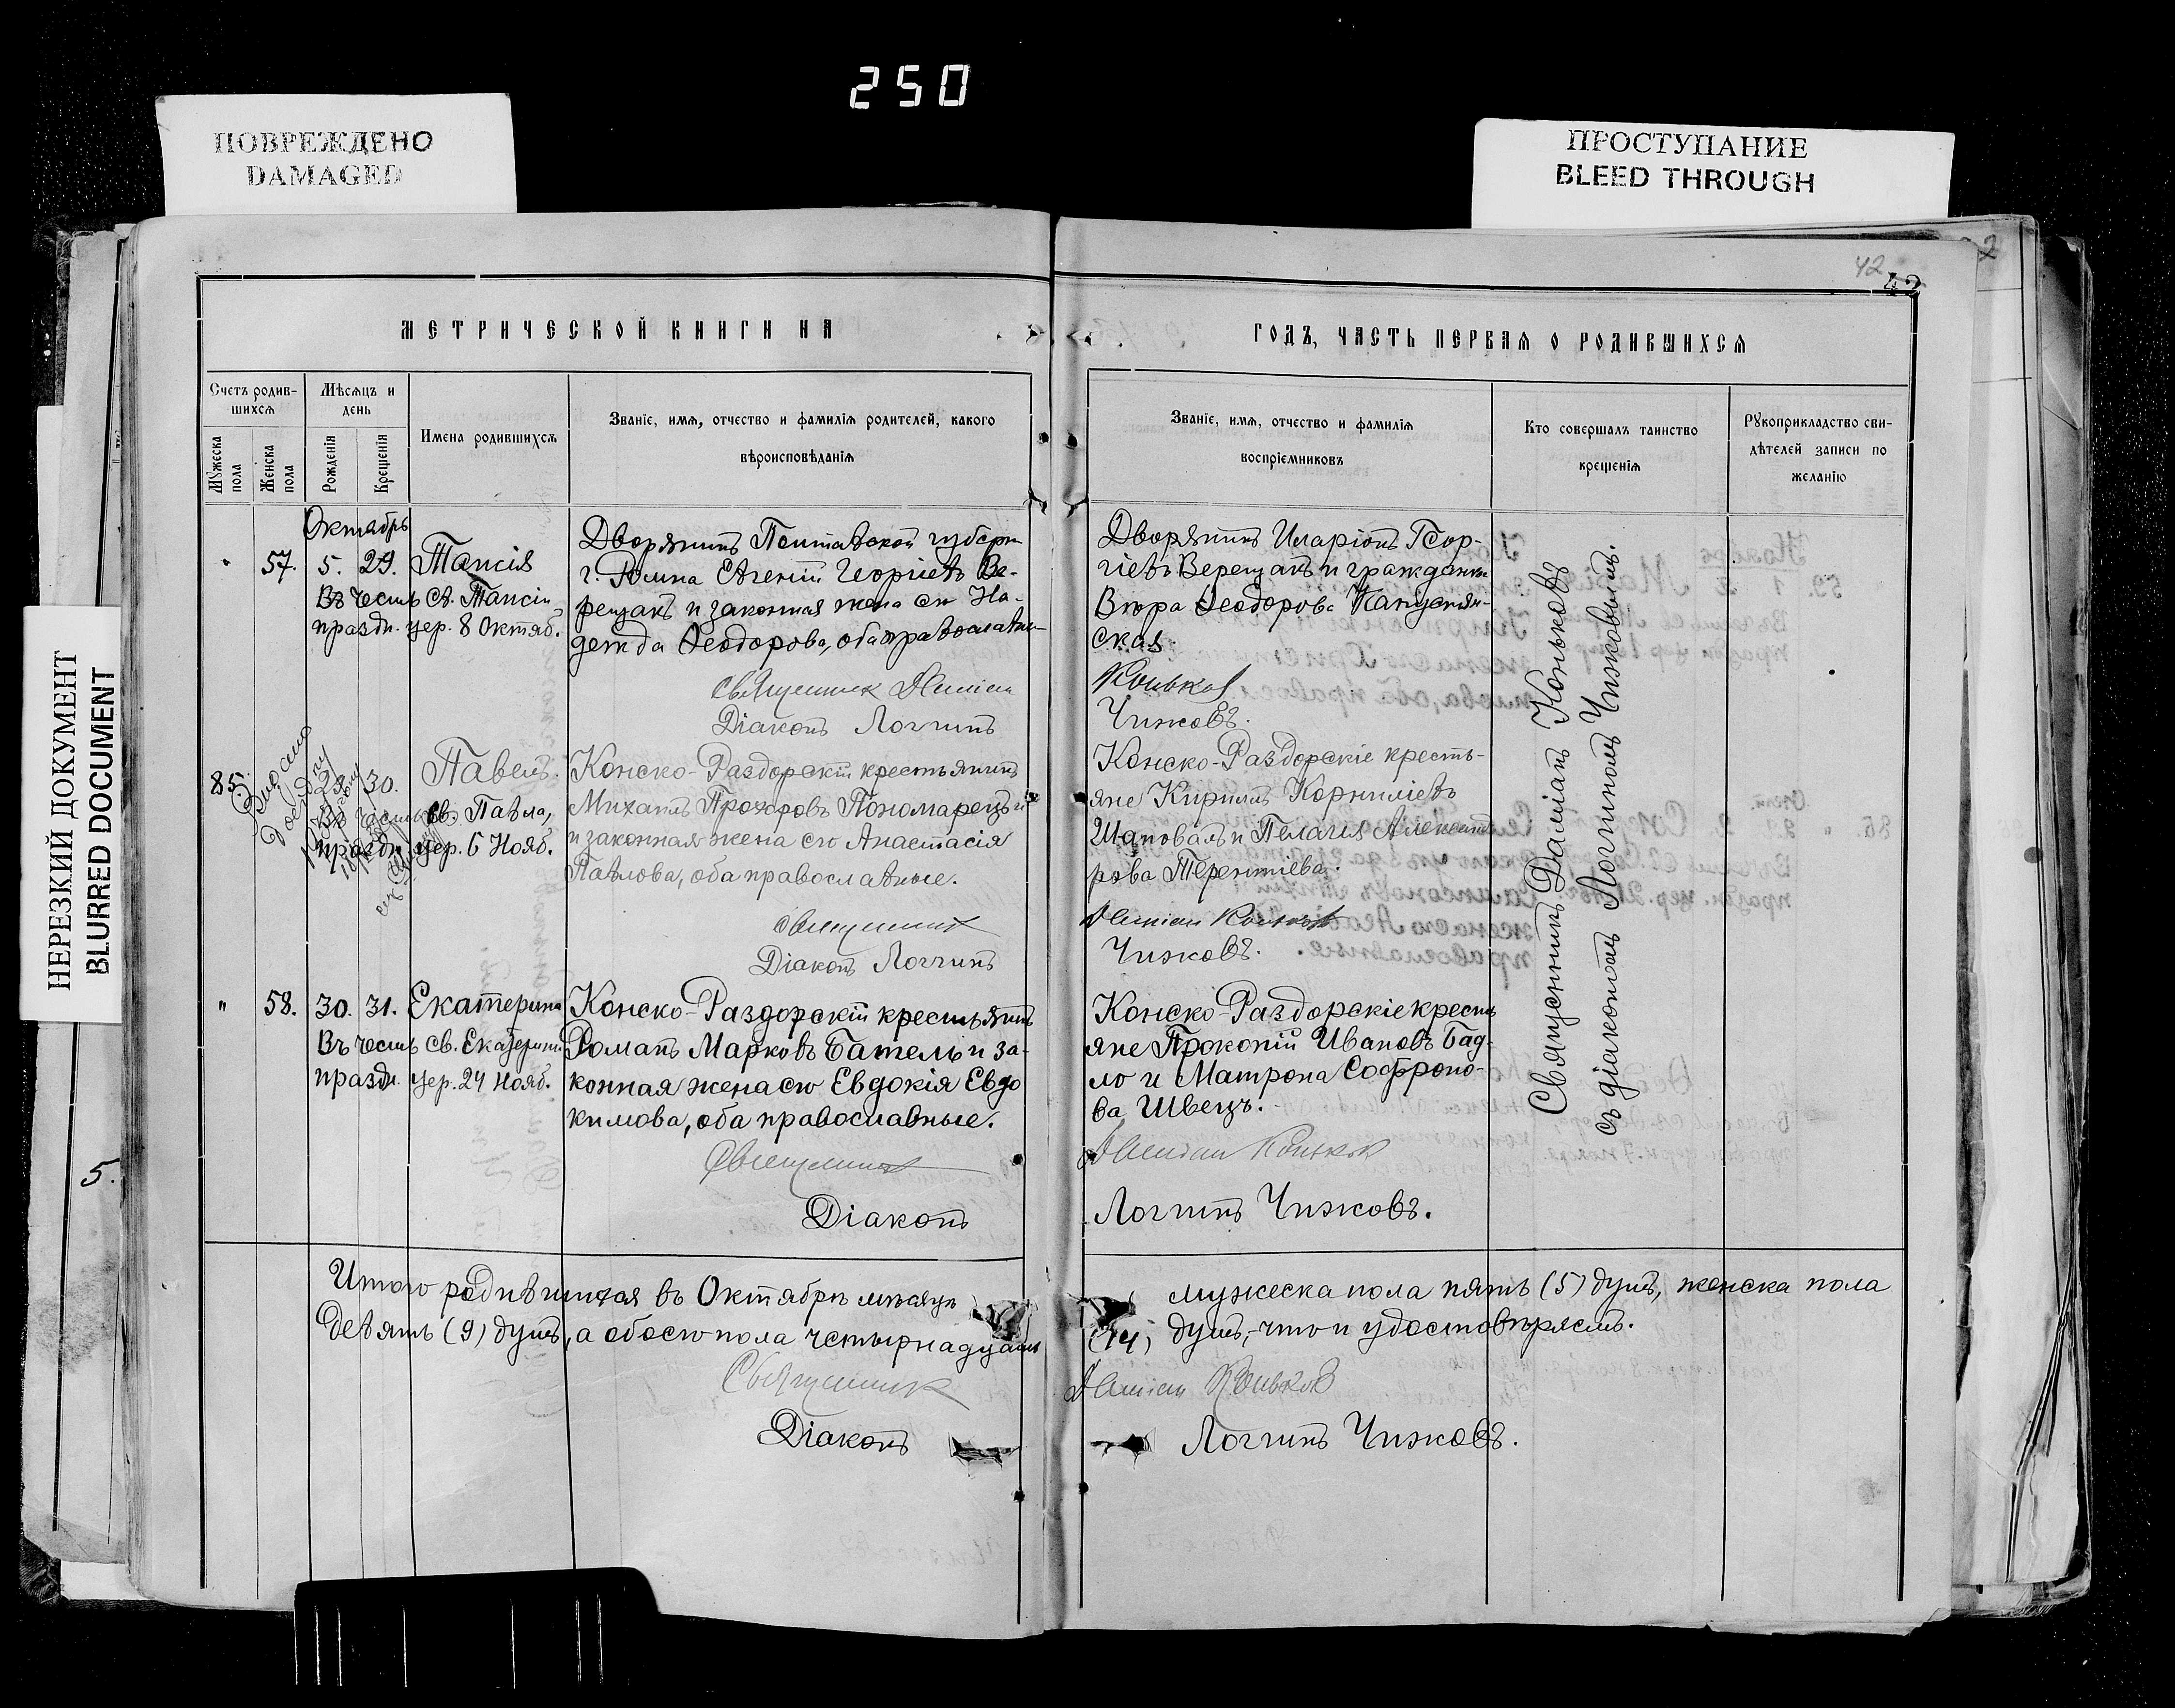 250
ПОВРЕЖДЕНО
DAMAGED
ПРОСТУПАНИЕ
BLEED THROUGH
НЕРЕЗКИЙ ДОКУМЕНТ
BLURRED DOCUMENT
42
42
5.
МЕТРИЧЕСКОЙ КНИГИ НА
ГОДЪ, ЧАСТЬ ПЕРВАЯ О РОДИВШИХСЯ
Счетъ родив-
шихся
Мѣсяцъ и
день
Мужеска
пола
Женска
пола
Рожденія
Крещенія
Имена родившихся
Званіе, имя, отчество и фамилія родителей, какого
вѣроисповѣданія
Званіе, имя, отчество и фамилія
воспріемниковъ
Кто совершалъ таинство
крещенія
Рукоприкладство сви-
дѣтелей записи по
желанію
Октябрь
" 57. 5. 29. Таисія
Въ честь св. Таисіи
праздн. цер. 8 Октяб.
Дворянинъ Полтавской губерн
г. Ромна Евгеній Георгіевъ Ве-
рещакъ и законная жена его На-
дежда Ѳеодорова, оба православн
Священник Даміан
Діаконъ Логгинъ
Дворянинъ Иларіонъ Геор-
гіевъ Верещакъ и гражданка
Вѣра Ѳеодорова
ская.
Коньков
Чижовъ.
85. 29. 30. Павелъ.
Въ честь св. Павла,
праздн. цер. 6 Нояб.
Конско-Раздорскій крестьянинъ
Михаилъ Прохоровъ Пономарець и
и законная жена его Анастасія
Павлова, оба православные.
Священник
Діаконъ Логгинъ
Конско-Раздорскіе кресть-
яне Кириллъ Корниліевъ
Шаповалъ и Пелагія Александ
рова Терентіева.
Даміан Коньков
Чижовъ.
" 58. 30. 31. Екатерина
Въ честь св. Екатерины
праздн. цер. 24 Нояб.
Конско-Раздорскій крестьянинъ
Романъ Марковъ Батель и за-
конная жена его Евдокія Евдо
кимова, оба православные.
Священник
Діаконъ
Конско-Раздорскіе кресть
яне Прокопій Ивановъ Бад-
ло и Матрона Софроно-
ва Швецъ.
Даміан Коньков
Логгинъ Чижовъ.
Священникъ Даміанъ Коньковъ
съ діакономъ Логгиномъ Чижовымъ.
Итого родившихся въ Октябрѣ мѣсяцѣ
девять (9) душъ, а обоего пола четырнадцать
мужеска пола пять (5) душъ, женска пола
(14) душъ, что и удостовѣряемъ.
Священник
Діаконъ
Даміан Коньков
Логгинъ Чижовъ.